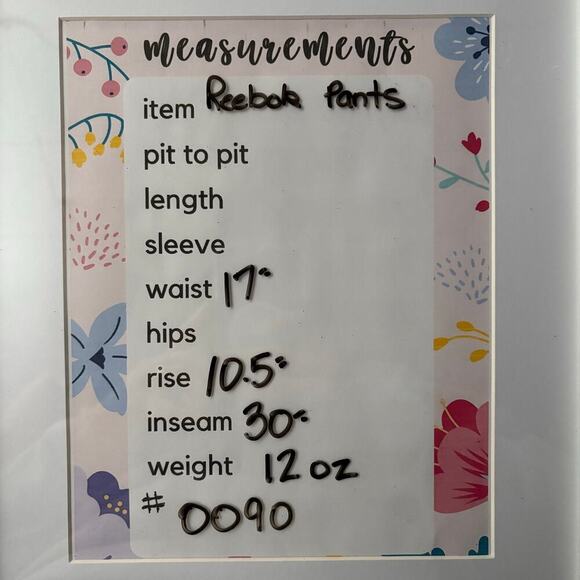 measurements
item Reebok Pants
pit to pit
length
sleeve
waist 17"
hips
rise 10.5"
inseam 30"
weight 12 oz
# 0090